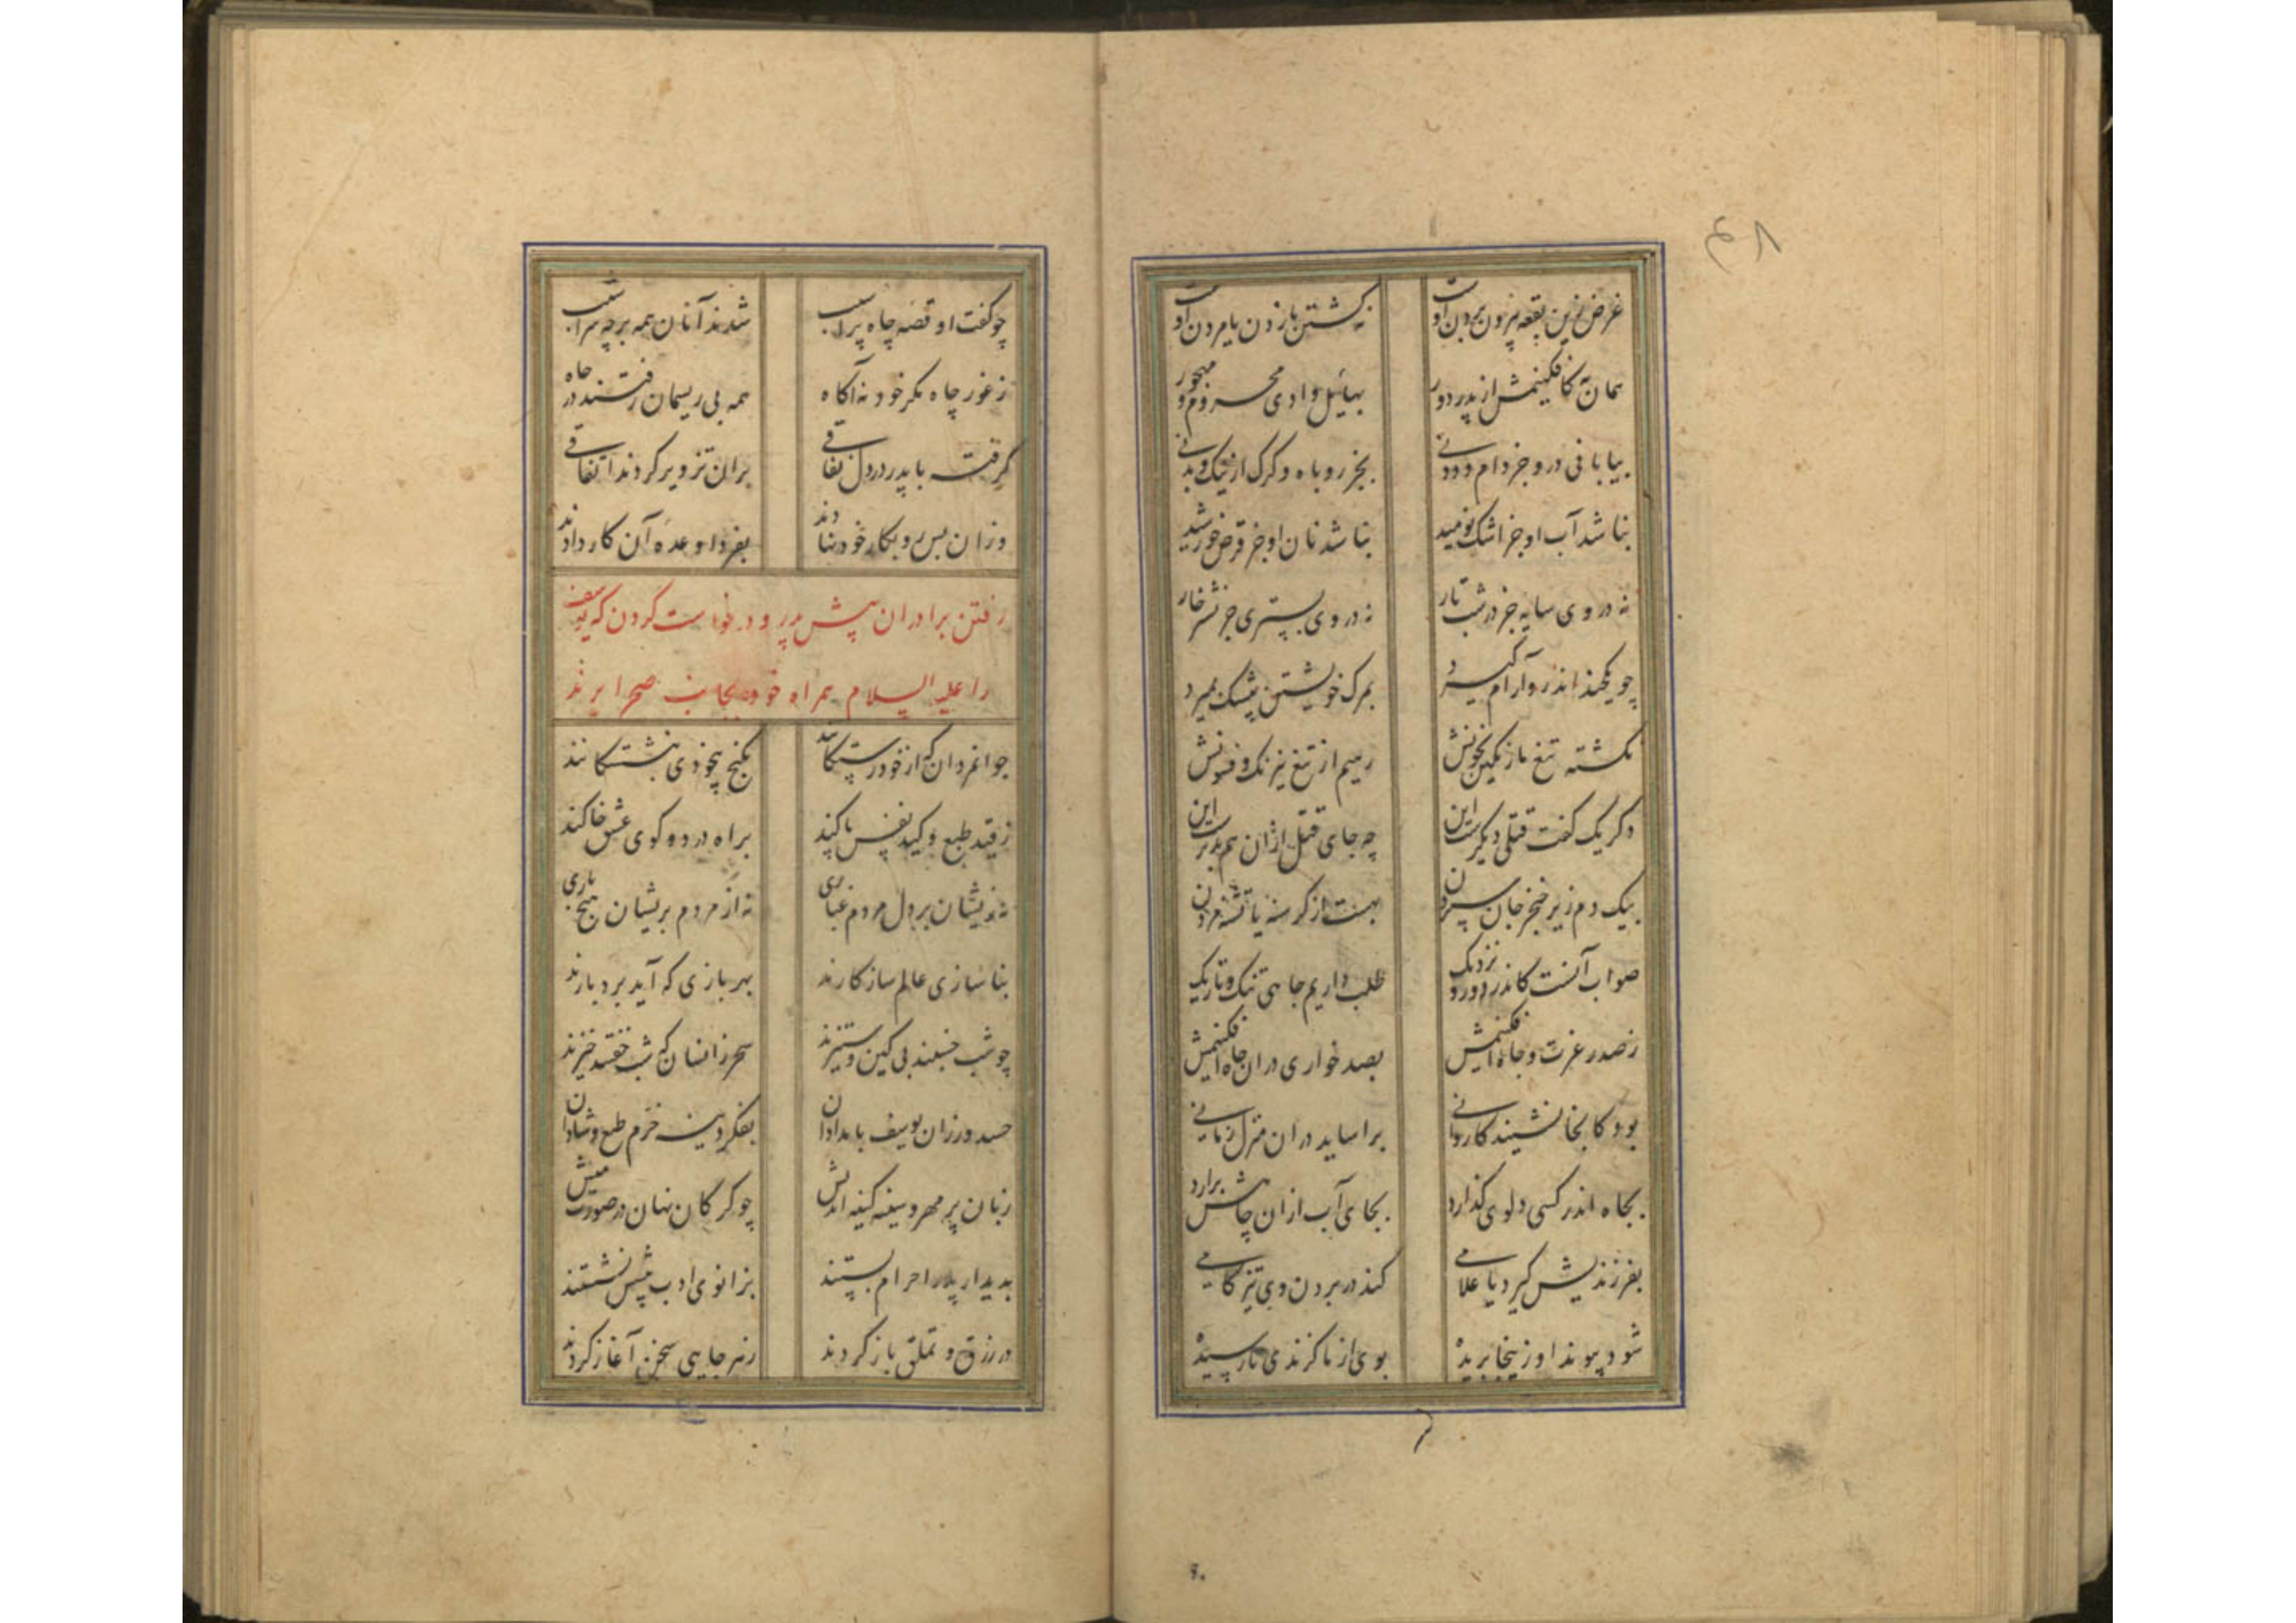 ۴۸
غرض زین بقعه بیرون بردن اوست نه کشتن یا زدن یا مردن اوست
همان به کافکنیمش از پدر دور بهایل وادی محروم و مهجور
بیابانی درو جز دام و دد نی بجز روباه و گرگ از نیک و بد نی
نباشد آب او جز اشک نومید نباشد نان او جز قرص خورشید
نه در وی سایه جز در شب تار نه در وی بستری جز نشتر خار
چو یکچند اندرو آرام گیرد بمرگ خویشتن بیشک بمیرد
نکشته تیغ ما رنگین بخونش رهیم از تیغ نیرنگ و فسونش
دگر یک گفت قتلی دیگرست این چه جای قتل ازان هم بدترست این
بیک دم زیر خنجر جان سپردن بهست از گرسنه یا تشنه مردن
صواب آنست کاندر دور و نزدیک طلب داریم چاهی تنگ و تاریک
ز صدر عزت و جاه افکنیمش بصد خواری دران چاه افکنیمش
بود کانجا نشیند کاروانی براساید دران منزل زمانی
بچاه اندر کسی دلوی گذارد بجای آب ازان چاهش برارد
بفرزندیش گیرد یا غلامی کند در بردن وی تیزگامی
شود پیوند او زینجا بریده بوی از ما گزندی نارسیده
چو گفت او قصه چاه پر آسیب شدند آنان همه بر چه سراشیب
ز غور چاه مکر خود نه آگاه همه بی ریسمان رفتند در چاه
گرفته با پدر در دل نفاقی بران تزویر کردند اتفاقی
وزان پس رو بکار خود نهادند بفردا وعده آن کار دادند
رفتن برادران پیش پدر و درخواست کردن که یوسف
را علیه السلام همراه خود بجانب صحرا برند
جوانمردان که از خود رستگانند بکنج بیخودی بنشستگانند
ز قید طبع و کید نفس پاکند براه درد و کوی عشق خاکند
نه زیشان بر دل مردم غباری نه از مردم بریشان هیچ باری
بناسازی عالم سازگارند بهر بازی که آید بردبارند
چو شب خسبند بی کین و ستیزند سحر زانسان که شب خفتند خیزند
حسد ورزان یوسف بامدادان بفکر دینه خرم طبع و شادان
زبان پر مهر و سینه کینه اندیش چو گرگان نهان در صورت میش
بدیدار پدر احرام بستند بزانوی ادب پیشش نشستند
در زرق و تملق باز کردند ز هر جایی سخن آغاز کردند